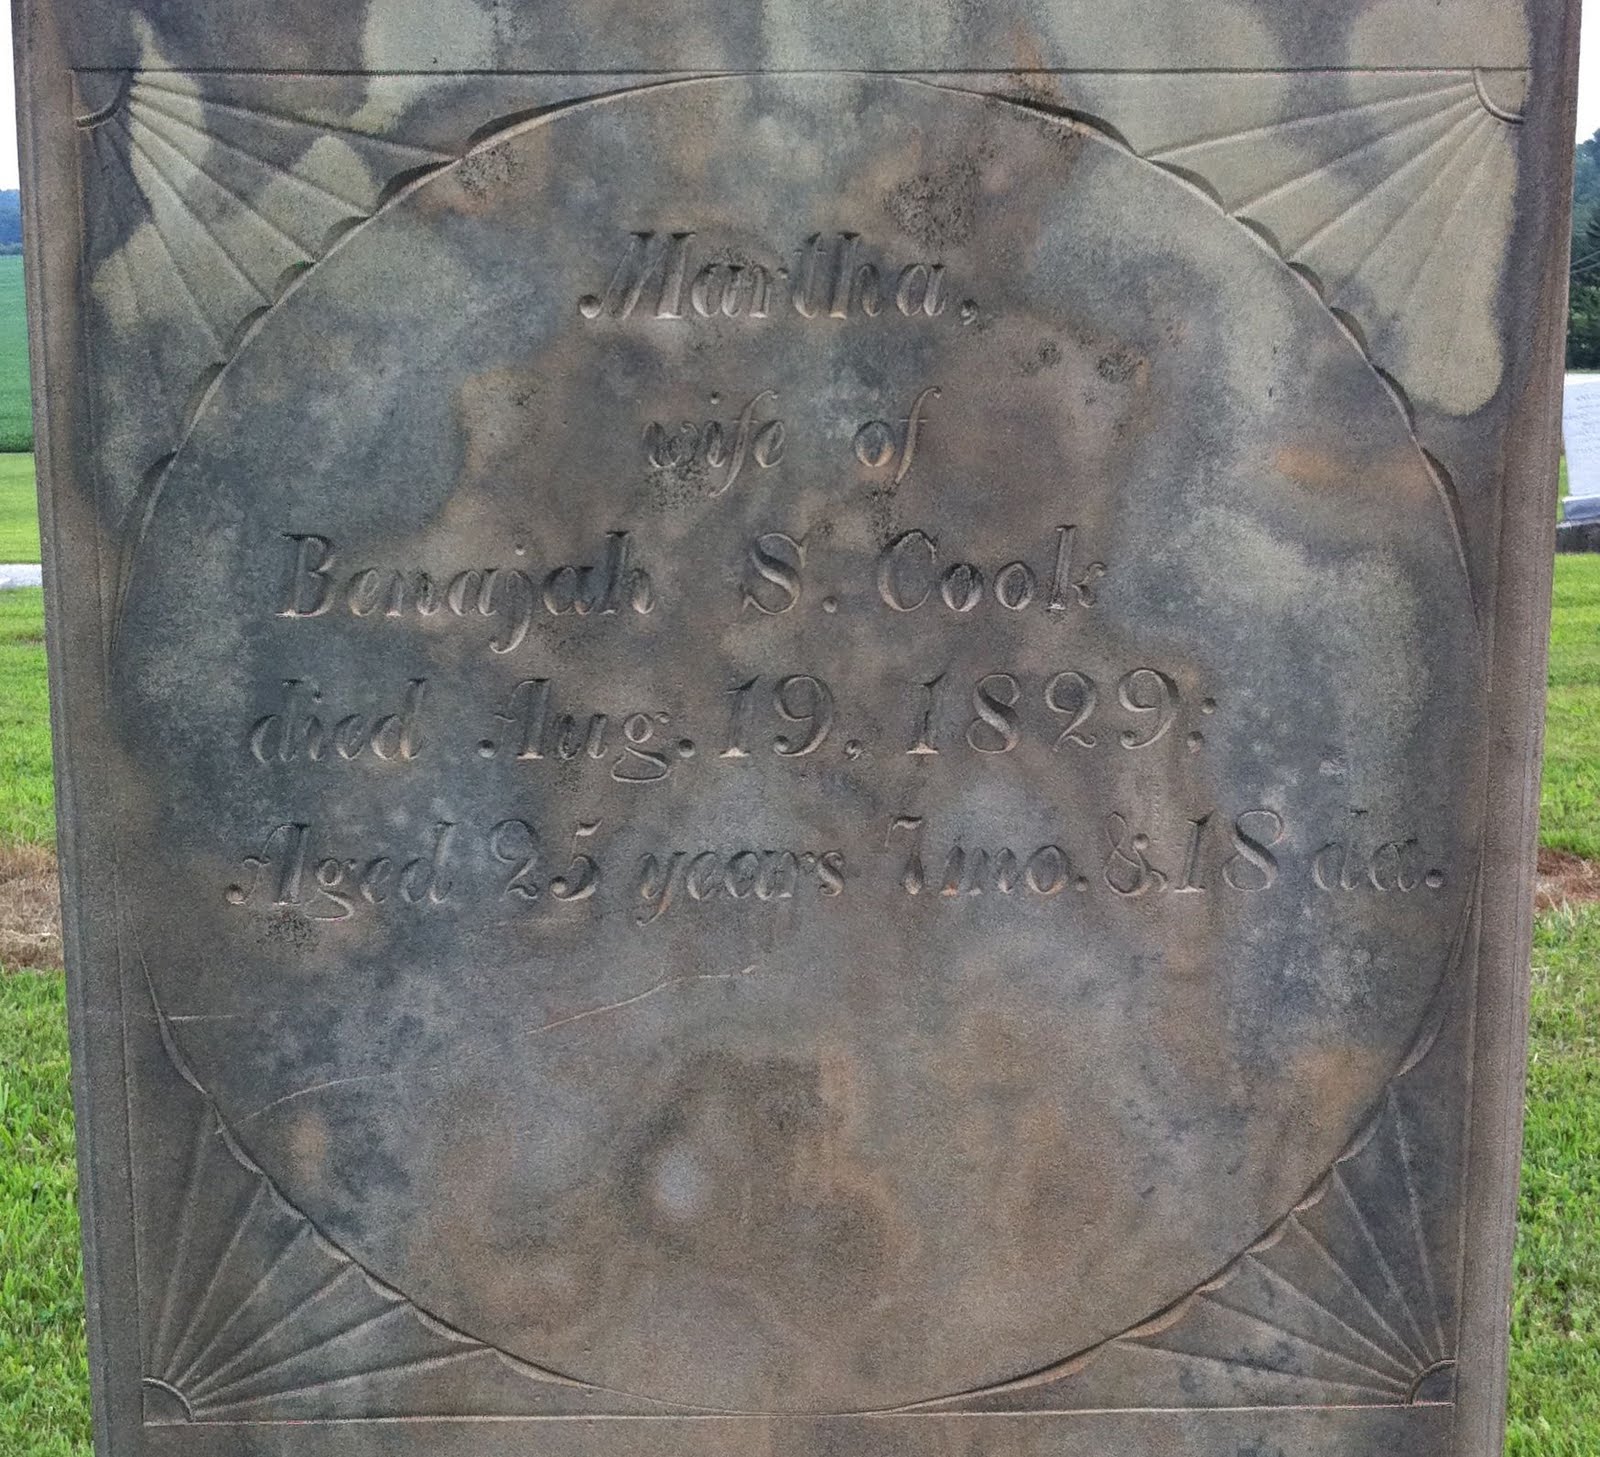 Martha,
wife of
Benajah S. Cook
died Aug. 19, 1829;
Aged 25 years 7 mo. & 18 da.